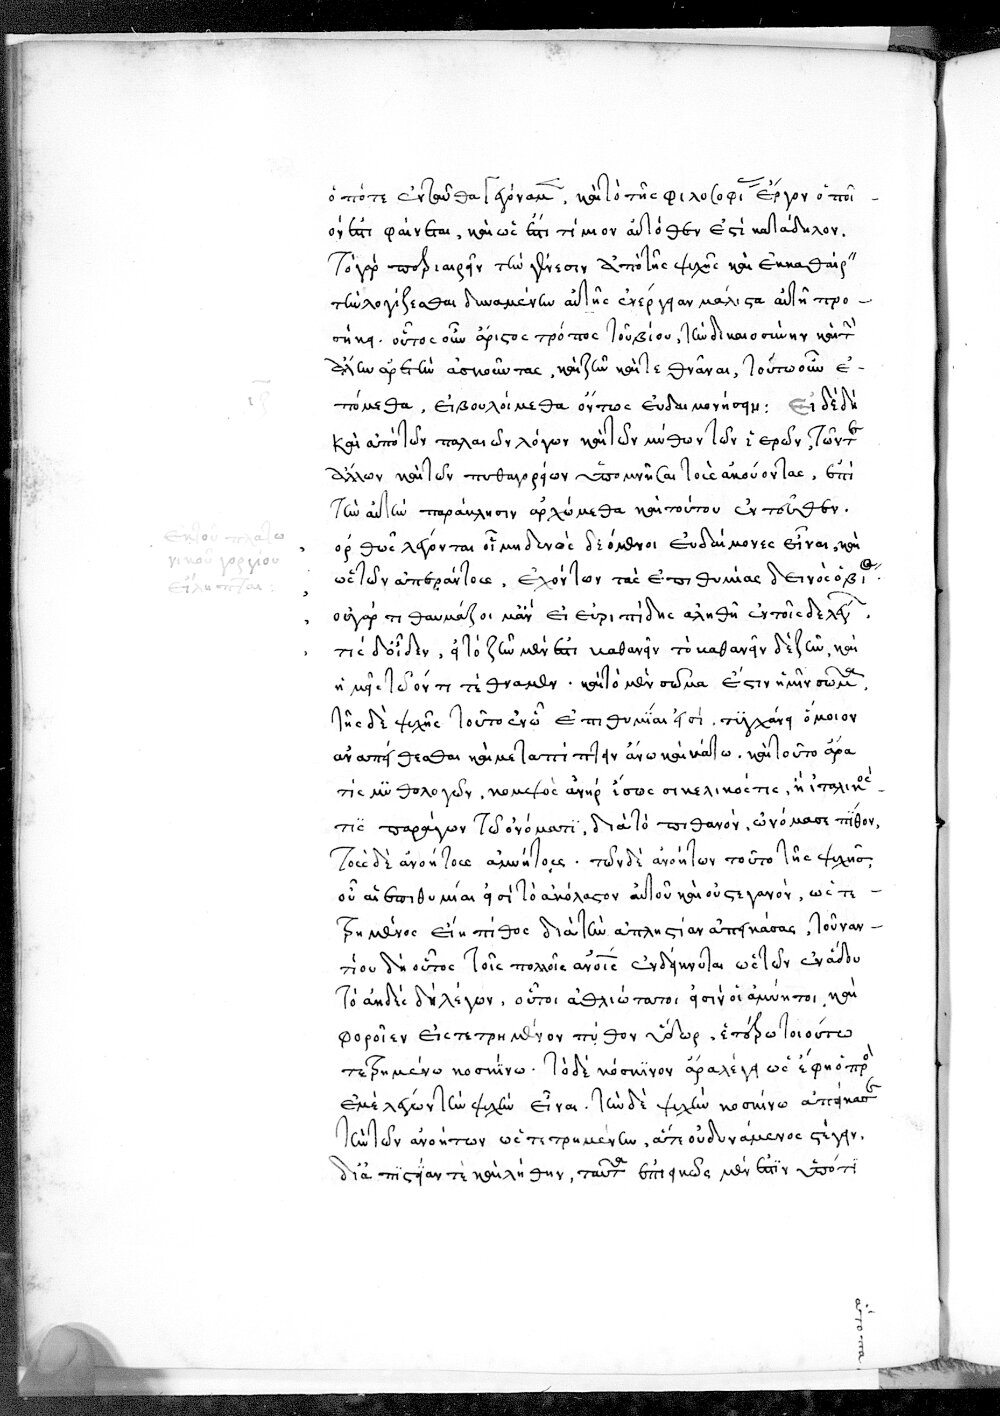 ὁπότε ἐνταῦθα γεγόναμεν, καὶ τὸ τῆς φιλοσοφίας ἔργον ὁποῖ-
όν ἐστι φαίνεται, καὶ ὡς ἔστι τίμιον αὐτόθεν ἐστὶ κατάδηλον.
Τὸ γὰρ περιαιρεῖν τὴν γένεσιν ἀπὸ τῆς ψυχῆς καὶ ἐκκαθαίρειν
τὴν λογίζεσθαι δυναμένην αὐτῆς ἐνέργειαν μάλιστα αὐτῆ προ-
σήκει. οὗτος οὖν ἄριστος τρόπος τοῦ βίου, τὴν δικαιοσύνην καὶ τὴν
ἄλλην ἀρετὴν ἀσκοῦντας, καὶ ζῆν καὶ τεθνάναι, τούτω οὖν ἑ-
πόμεθα, εἰ βουλοίμεθα ὄντως εὐδαιμονήσειν: Εἰ δὲ δεῖ
καὶ ἀπὸ τῶν παλαιῶν λόγων καὶ τῶν μύθων τῶν ἱερῶν, τῶν τε
ἄλλων καὶ τῶν πυθαγορείων ὑπομνῆσαι τοὺς ἀκούοντας, ἐπὶ
τὴν αὐτὴν παράκλησιν ἀρχώμεθα καὶ τούτου ἐντεῦθεν.
ιζ
ἐκ τοῦ πλατω
νικοῦ γοργίου
εἴληπται:
ὀρθῶς λέγονται οἱ μηδενὸς δεόμενοι εὐδαίμονες εἶναι, καὶ
ὡς τῶν ἀπεράντους, ἐχόντων τὰς ἐπιθυμίας δεινὸς ὁ βίος.
οὐ γάρ τι θαυμάζοιμ' ἂν εἰ εὐριπίδης ἀληθῆ ἐν τοῖσδε λέγει,
τίς δ' οἶδεν, εἰ τὸ ζῆν μέν ἐστι κατθανεῖν τὸ κατθανεῖν δὲ ζῆν, καὶ
ἡμεῖς τῶ ὄντι τέθναμεν. καὶ τὸ μὲν σῶμα ἐστιν ἡμῖν σῆμα,
τῆς δὲ ψυχῆς τοῦτο ἐν ὧ ἐπιθυμίαι εἰσὶ, τυγχάνει ὅμοιον
ἀναπείθεσθαι καὶ μεταπίπτειν ἄνω καὶ κάτω. καὶ τοῦτο ἄρα
τὶς μυθολογῶν, κομψὸς ἀνὴρ ἴσως σικελικός τις, ἢ ἰταλικὸς
παράγων τῶ ὀνόματι, διὰ τὸ πιθανόν, ὠνόμασε πίθον,
τοὺς δὲ ἀνοήτους ἀμυήτους. τῶν δὲ ἀνοήτων τοῦτο τῆς ψυχῆς,
οὗ αἱ ἐπιθυμίαι εἰσὶ τὸ ἀκόλαστον αὐτοῦ καὶ οὐ στεγανόν, ὡς τε-
τρημένος εἴη πίθος διὰ τὴν ἀπληστίαν ἀπεικάσας, τοὐναν-
τίον δὴ οὗτος τοῖς πολλοῖς ἀνοις ἐνδείκνυται ὡς τῶν ἐν ἅδου
τὸ ἀηδὲς δὴ λέγων, οὗτοι ἀθλιώτατοι εἰσὶν οἱ ἀμύητοι, καὶ
φοροῖεν εἰς τετρημένον πίθον ὕδωρ, ἑτέρω τοιούτω
τετρημένω κοσκίνω. τὸ δὲ κόσκινον ἄρα λέγει ὡς ἔφη ὁ πρὸς
ἐμὲ λέγων τὴν ψυχὴν εἶναι. τὴν δὲ ψυχὴν κοσκίνω ἀπείκασε
τὴν τῶν ἀνοήτων ὡς τετρημένην, ἅτε οὐ δυνάμενος στέγειν,
δι' ἀπιστίαν τὲ καὶ λήθην, ταῦτα ἐπιεικῶς μέν ἐστιν ὑπό τι